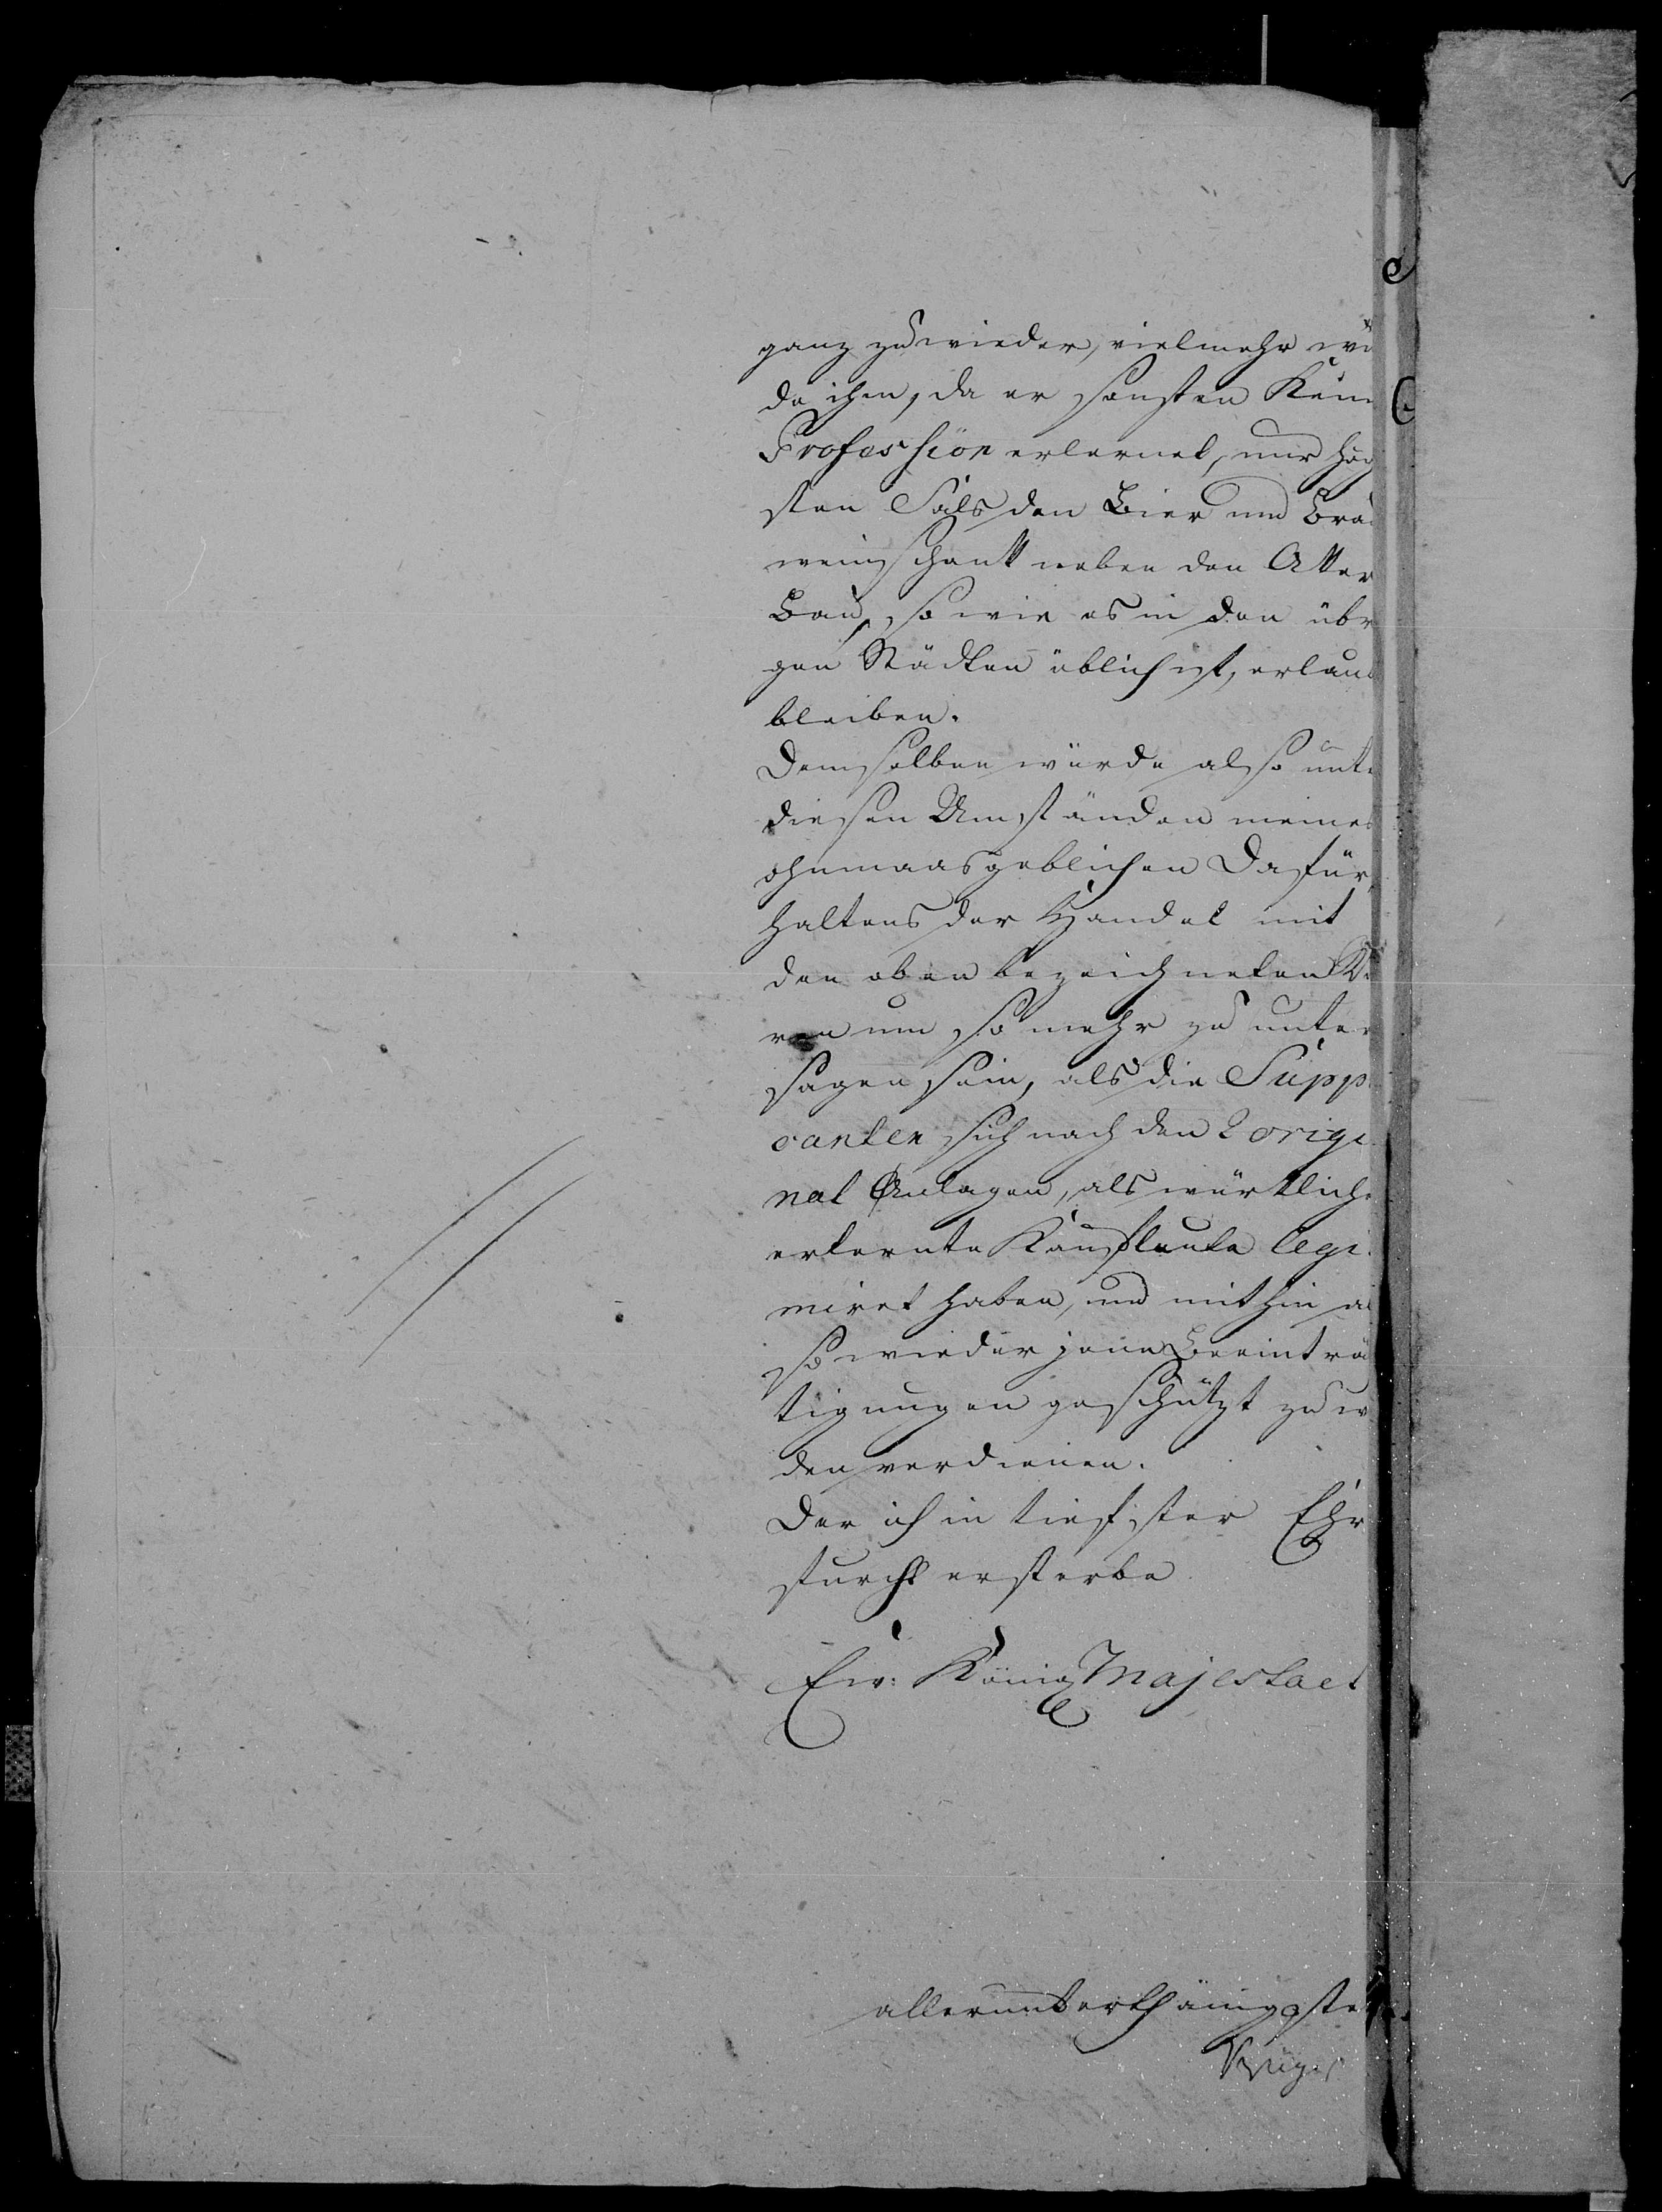 ganz zuwieder, vielmehr wü
de ihm, da er sonsten Kein
Profession erlernet, nur höch
sten Fals den Bier und Bran
weinschank neben den Acker
Bau, so wie es in den übr
gen Städten üblich ist, erlaub
bleiben.
Demselben würde also unte
diesen Umständen meines
ohnmaasgeblichen Dafür,
haltens der Handel mit
den oben bezeichneten Wa
ren um so mehr zu unter
sagen sein, als die Suppl
canten sich nach den 2 origi
nal Anlagen, als würkliche
erlernte Kaufleute legi
miret haben, und mithin al
so wieder jene Beeinträ
tigungen geschützt zu w
den verdienen.
Der ich in tiefster Ehr
furcht ersterbe
Ew: Königl Majestaet
allerunterthänigster
Krüger